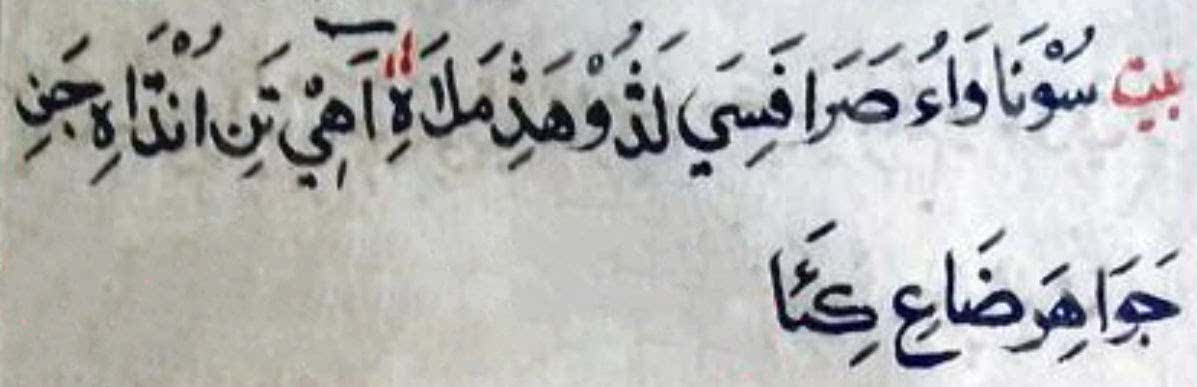 بيت سُوْنَا وَاءُ صَرَافَسِي لَڎُوْ هَڎِ مَلَاهِ آهِيْ تَنِ اُنْڎَاهِ جَنِ
جَوَاهِرَ ضَاعِ كِئَا